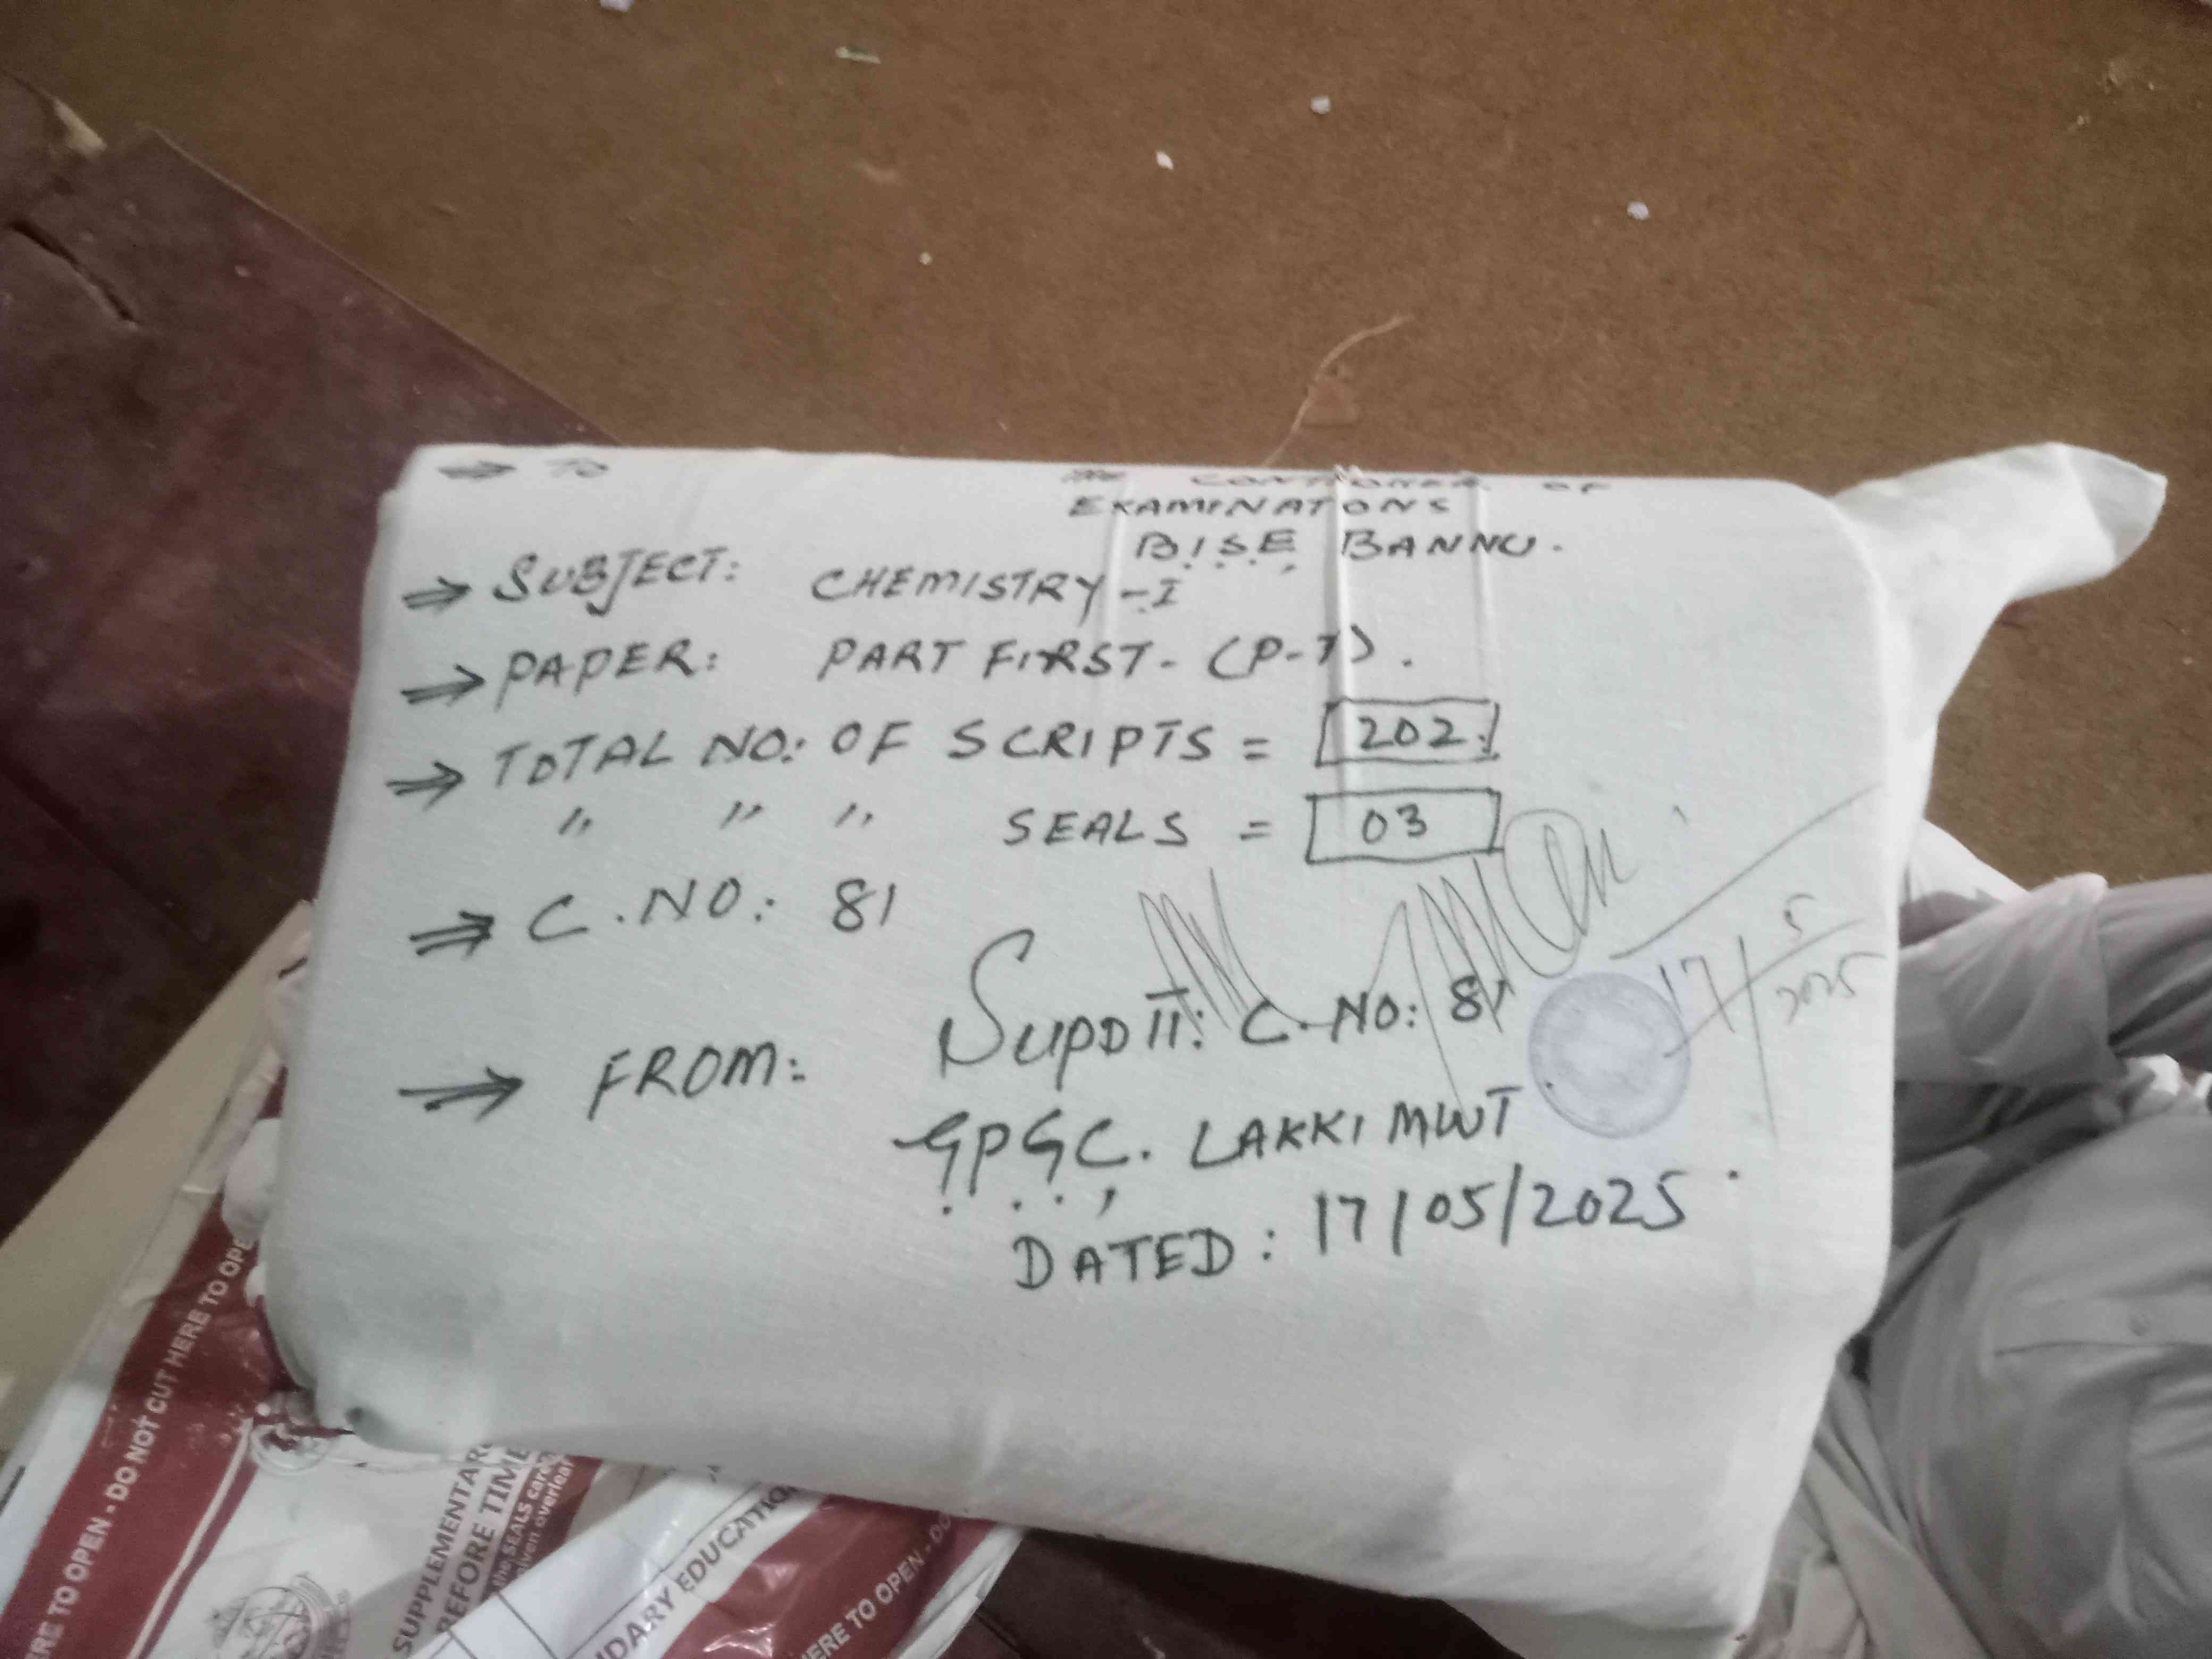 ⇒ To
The CONTROLLER OF
EXAMINATONS
B.I.S.E, BANNU.
⇒ SUBJECT: CHEMISTRY-I
⇒ PAPER: PART FIRST- (P-I).
⇒ TOTAL NO: OF SCRIPTS = 202.
" " " SEALS = 03
⇒ C.NO: 81
17/5/2025
⇒ FROM: SUPDTT: C.NO: 81
G.P.G.C. LAKKI MWT
DATED: 17/05/2025
ERE TO OPEN - DO NOT CUT HERE TO OPE
SUPPLEMENTAR
BEFORE TIME
the SEALS care
given overleaf
NDARY EDUCATIO
HERE TO OPEN - DO